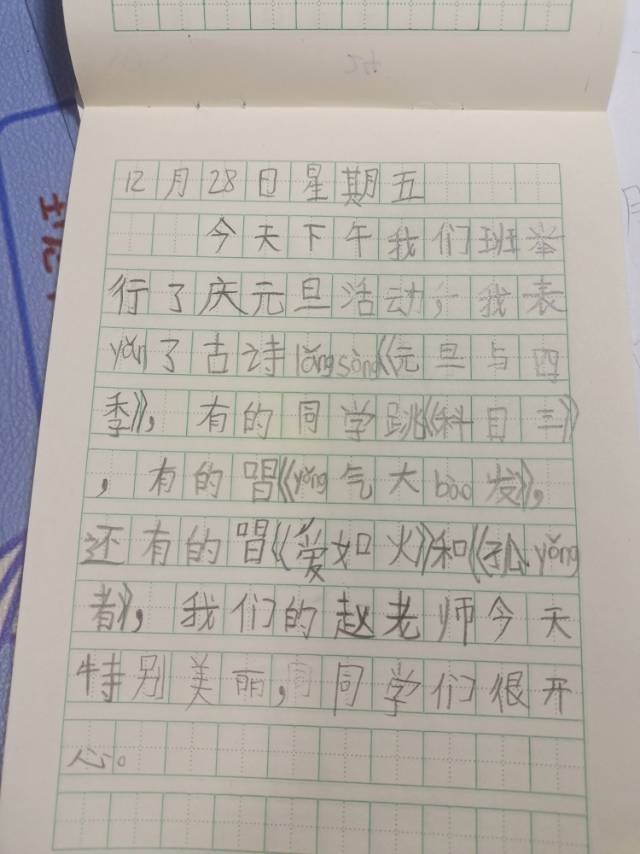 12月28日星期五
今天下午我们班举
行了庆元旦活动，我表
yǎn了古诗lǎngsòng《元旦与四
季》，有的同学跳《科目三》
，有的唱《yǒng气大bào发》，
还有的唱《爱如火》和《孤yǒng
者》，我们的赵老师今天
特别美丽，同学们很开
心。